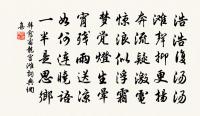 浩浩復湯湯
灘聲抑更揚
奔流疑激電
驚浪似浮霜
夢覺燈生暈
宵殘雨送涼
如何連曉語
一半是思鄉
韓愈宿龍宮灘詞典網
集